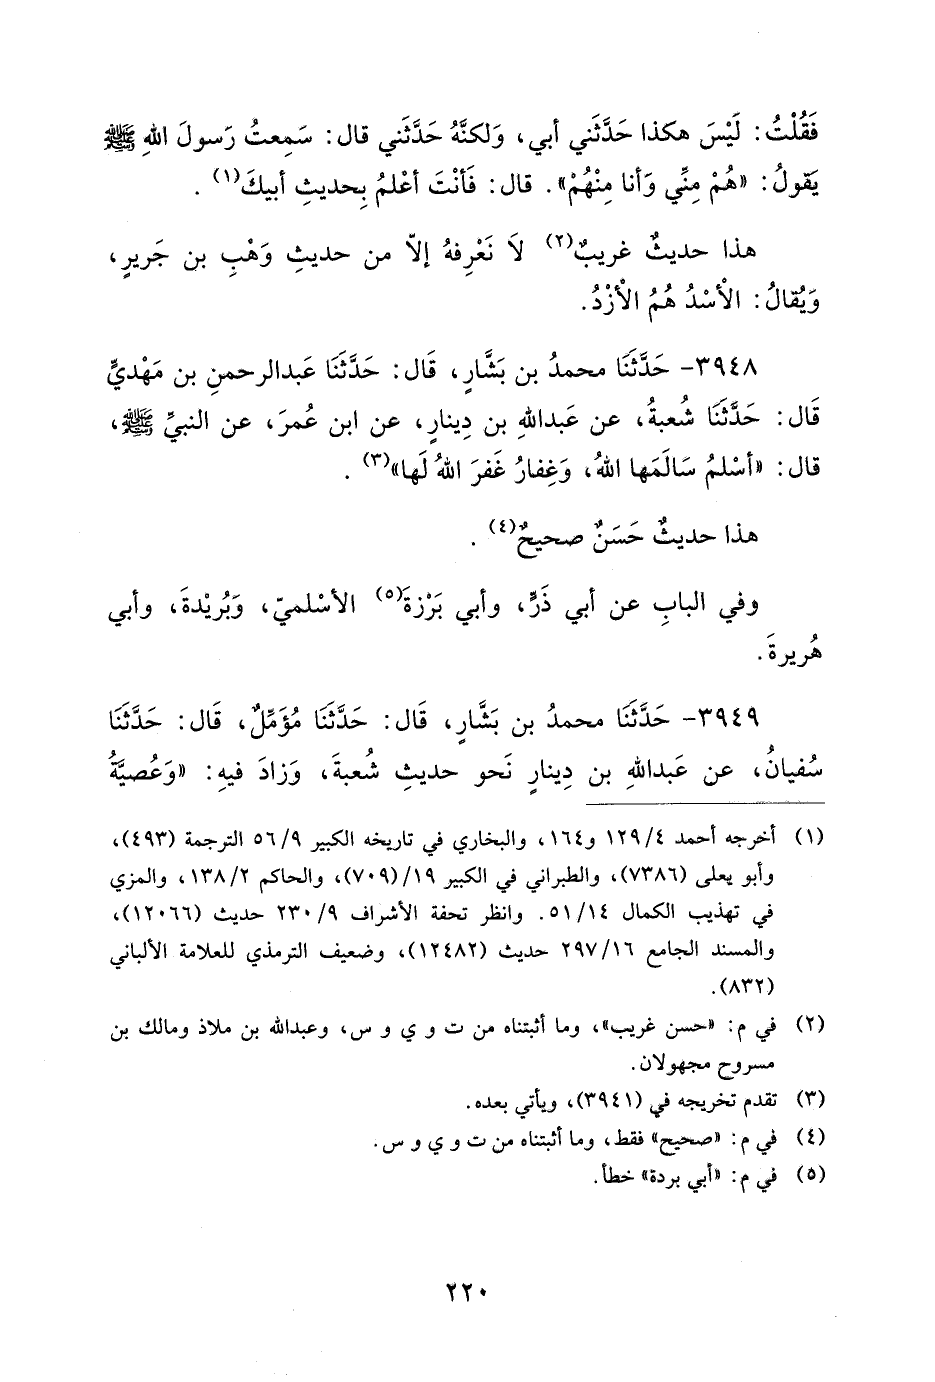 فَقُلْتُ: لَيْسَ هكذا حَدَّثَني أبي، وَلكنَّهُ حَدَّثَني قال: سَمِعتُ رَسولَ اللهِ ﷺ
يَقولُ: «هُمْ مِنِّي وَأنا مِنْهُمْ». قال: فَأنْتَ أعْلمُ بِحديثِ أبيكَ(١) .
هذا حديثٌ غريبٌ(٢) لَا نَعْرِفهُ إلاّ من حديثِ وَهْبِ بن جَريرٍ،
وَيُقالُ: الْأسْدُ هُمُ الْأزْدُ.
٣٩٤٨- حَدَّثَنَا محمدُ بن بَشَّارٍ، قَال: حَدَّثَنَا عَبدالرحمنِ بن مَهْديٍّ
قَال: حَدَّثَنَا شُعبةُ، عن عَبداللهِ بن دِينارٍ، عن ابن عُمرَ، عن النبيِّ ﷺ،
قال: «أسْلمُ سَالَمَها اللهُ، وَغِفارُ غَفرَ اللهُ لَها»(٣) .
هذا حديثٌ حَسَنٌ صحيحٌ(٤) .
وفي البابِ عن أبي ذَرٍّ، وأبي بَرْزةَ(٥) الأسْلميّ، وَبُرَيْدةَ، وأبي
هُريرةَ.
٣٩٤٩- حَدَّثَنَا محمدُ بن بَشَّارٍ، قَال: حَدَّثَنَا مُؤَمِّلٌ، قَال: حَدَّثَنَا
سُفيانُ، عن عَبداللهِ بن دِينارٍ نَحو حديثِ شُعبةَ، وَزادَ فيهِ: «وَعُصيَّةُ
(١) أخرجه أحمد ٤/ ١٢٩ و١٦٤، والبخاري في تاريخه الكبير ٩/ ٥٦ الترجمة (٤٩٣)،
وأبو يعلى (٧٣٨٦)، والطبراني في الكبير ١٩/ (٧٠٩)، والحاكم ٢/ ١٣٨، والمزي
في تهذيب الكمال ١٤/ ٥١. وانظر تحفة الأشراف ٩/ ٢٣٠ حديث (١٢٠٦٦)،
والمسند الجامع ١٦/ ٢٩٧ حديث (١٢٤٨٢)، وضعيف الترمذي للعلامة الألباني
(٨٣٢).
(٢) في م: «حسن غريب»، وما أثبتناه من ت و ي و س، وعبدالله بن ملاذ ومالك بن
مسروح مجهولان.
(٣) تقدم تخريجه في (٣٩٤١)، ويأتي بعده.
(٤) في م: «صحيح» فقط، وما أثبتناه من ت و ي و س.
(٥) في م: «أبي بردة» خطأ.
٢٢٠